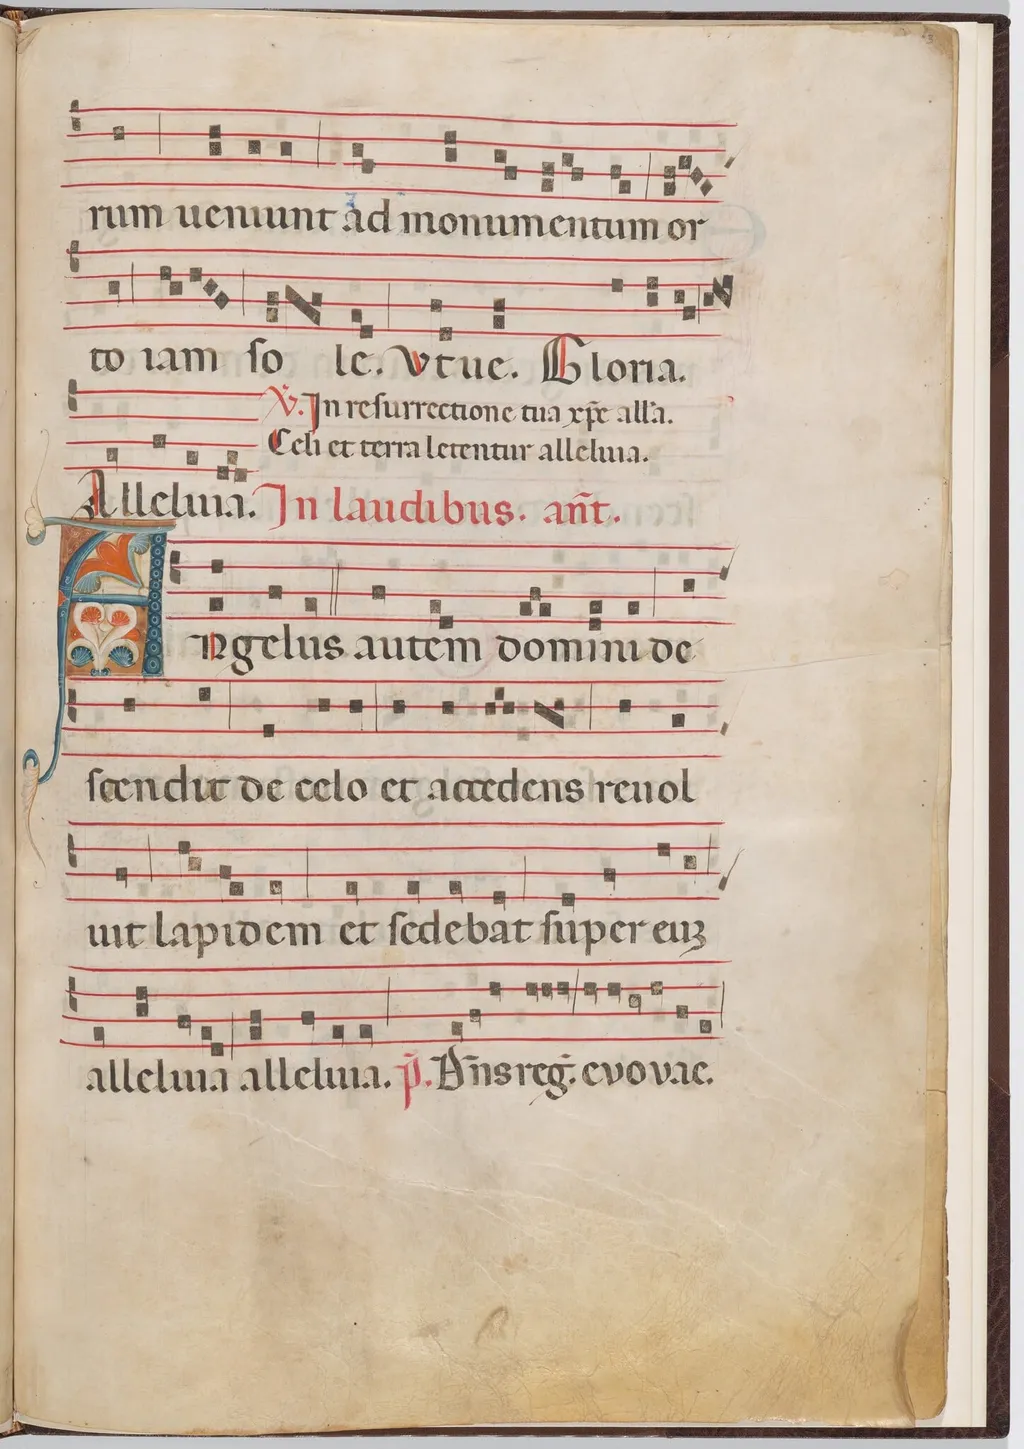 rum ueniunt ad monumentum or
to iam so le. Vt ue. Gloria.
V. In resurrectione tua xp̄e alla.
Celi et terra letentur alleluia.
Alleluia. In laudibus. an̄t.
Angelus autem domini de
scendit de celo et accedens reuol
uit lapidem et sedebat super euʒ
alleluia alleluia. p̄. Dn̄s reg. evovae.